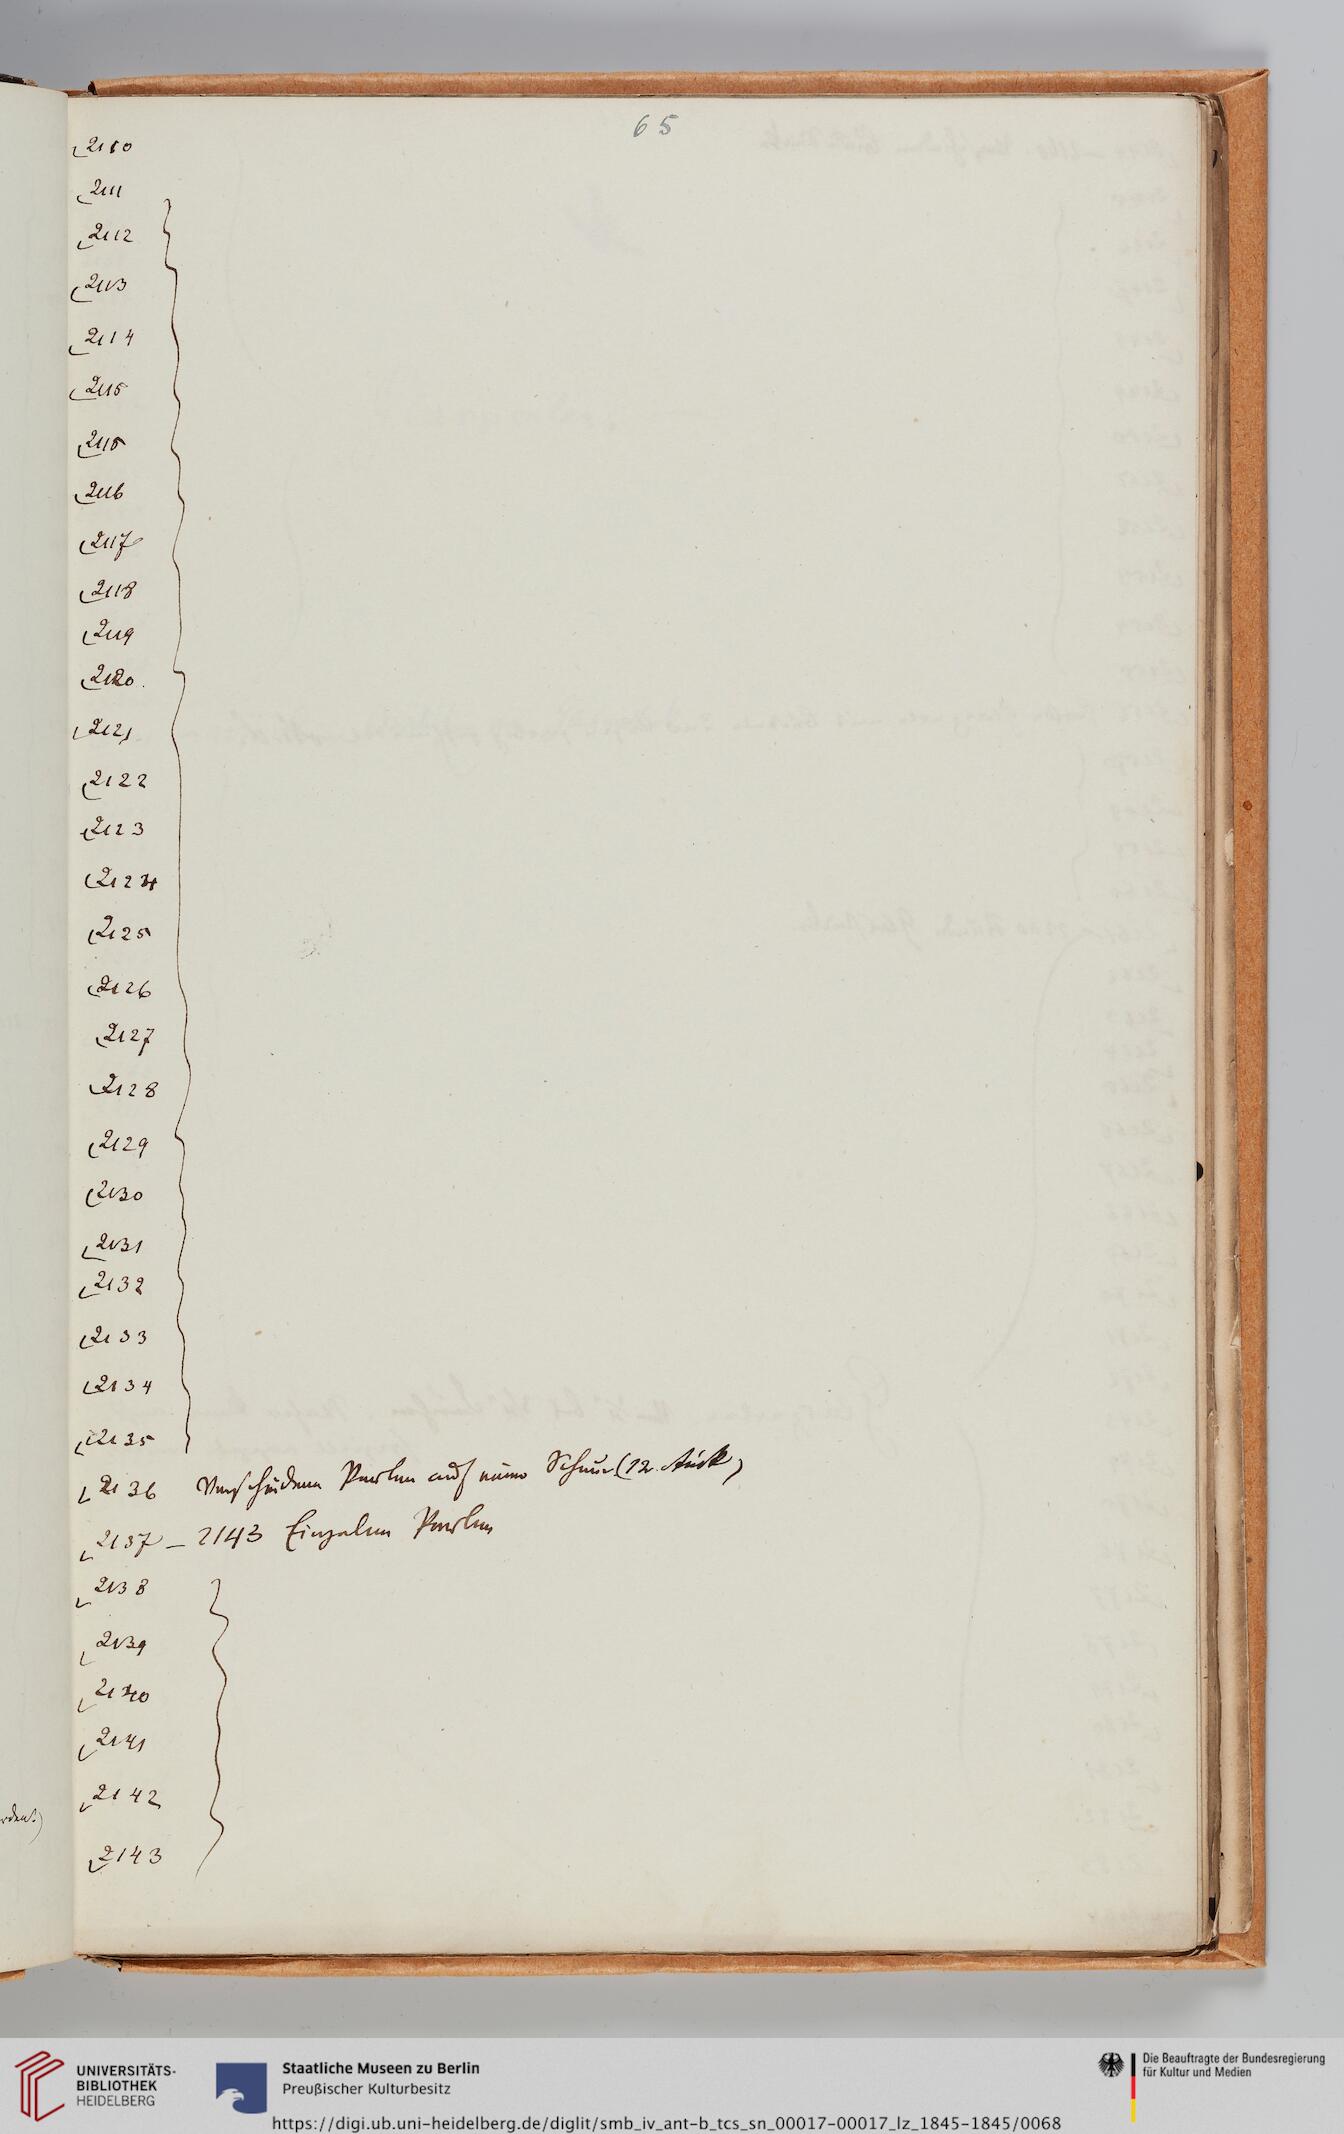 65
2110
2111
2112
2113
2114
2115
2115
2116
2117
2118
2119
2120.
2121
2122
2123
2124
2125
2126
2127
2128
2129
2130
2131
2132
2133
2134
2135
2136 Verschiedene Perlen auf einer Schnur (12 Stück)
2137 – 2143 Einzelne Perlen
2138
2139
2140
2141
2142
2143
UNIVERSITÄTS-
BIBLIOTHEK
HEIDELBERG
Staatliche Museen zu Berlin
Preußischer Kulturbesitz
Die Beauftragte der Bundesregierung
für Kultur und Medien
https://digi.ub.uni-heidelberg.de/diglit/smb_iv_ant-b_tcs_sn_00017-00017_lz_1845-1845/0068